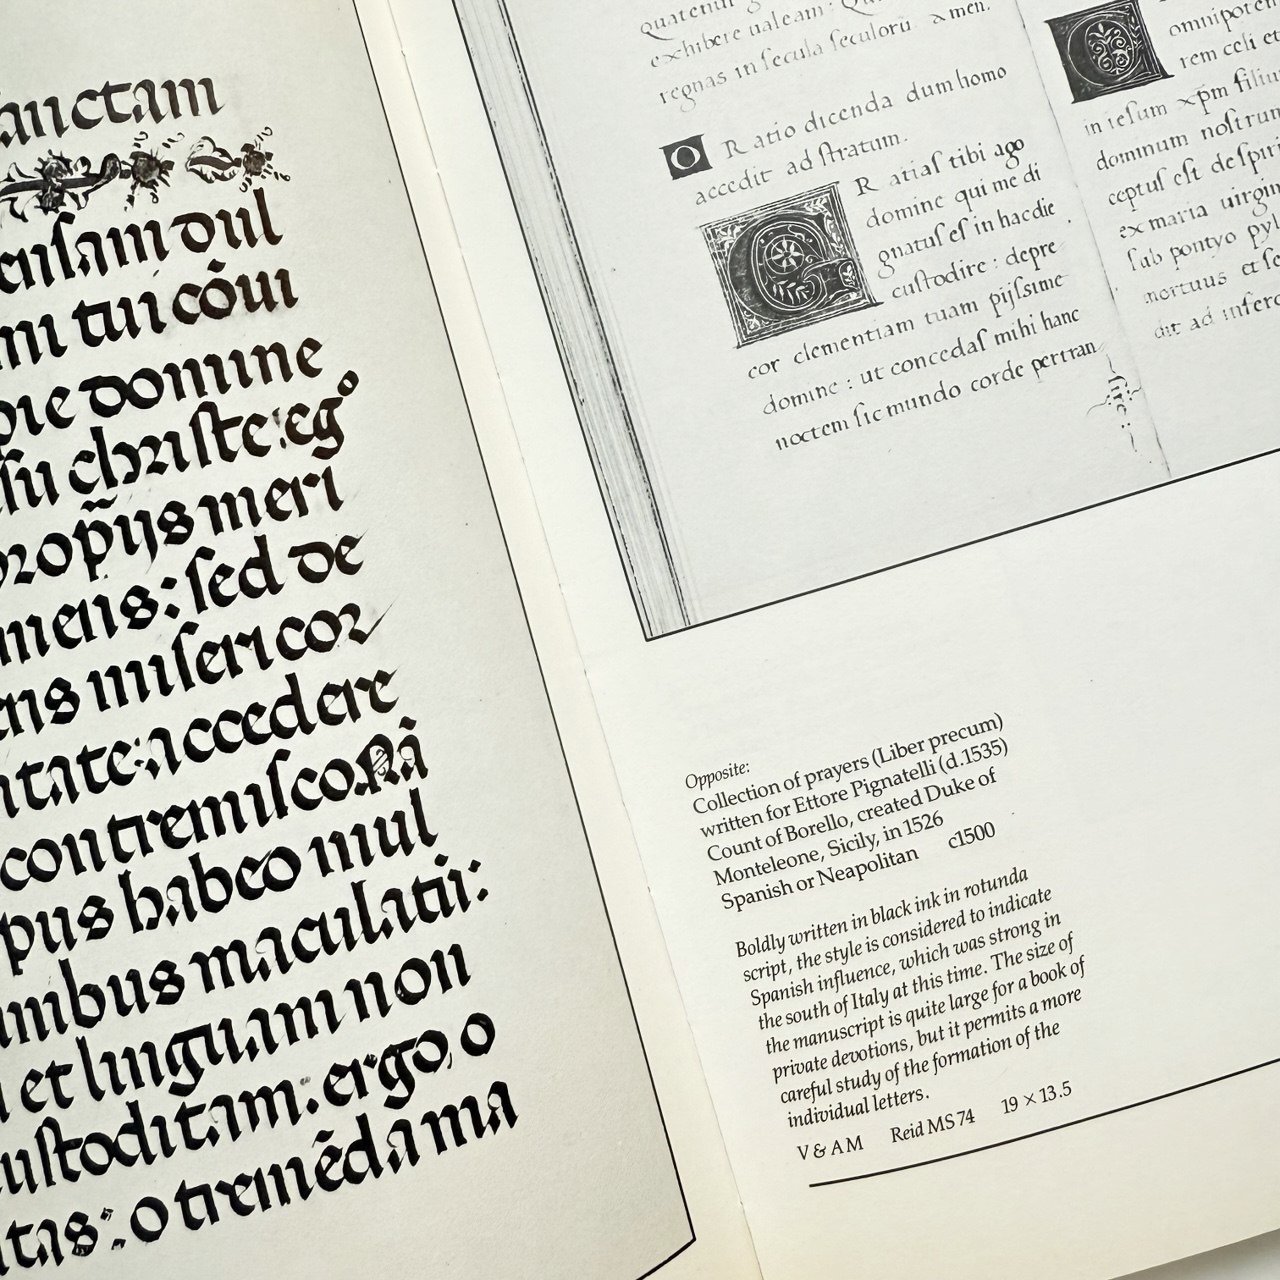 anctam
ensam dul
mi tui cōui
pie domine
su christe: ego
prop̃ijs meri
mens: sed de
ens misericor
tate: accedere
contremisco. Nā
pus habeo mul
nibus maculatū:
et linguam non
custoditam: ergo, o
tas: o tremēda ma
exhibere ualeam:
regnas in secula seculorū amen.
O Ratio dicenda dum homo
accedit ad stratum.
G R atias tibi ago
domine qui me di
gnatus es in hac die
custodire: depre
cor clementiam tuam pijssime
domine: ut concedas mihi hanc
noctem sic mundo corde pertran
sire:
C
omnipoten
rem celi et
in iesum xpm filiu
dominum nostrum
ceptus est de spiri
ex maria uirgin
sub pontyo pyl
mortuus et se
dit ad infero
Opposite:
Collection of prayers (Liber precum)
written for Ettore Pignatelli (d.1535)
Count of Borello, created Duke of
Monteleone, Sicily, in 1526
Spanish or Neapolitan c1500
Boldly written in black ink in rotunda
script, the style is considered to indicate
Spanish influence, which was strong in
the south of Italy at this time. The size of
the manuscript is quite large for a book of
private devotions, but it permits a more
careful study of the formation of the
individual letters.
V & A M Reid MS 74 19 × 13.5